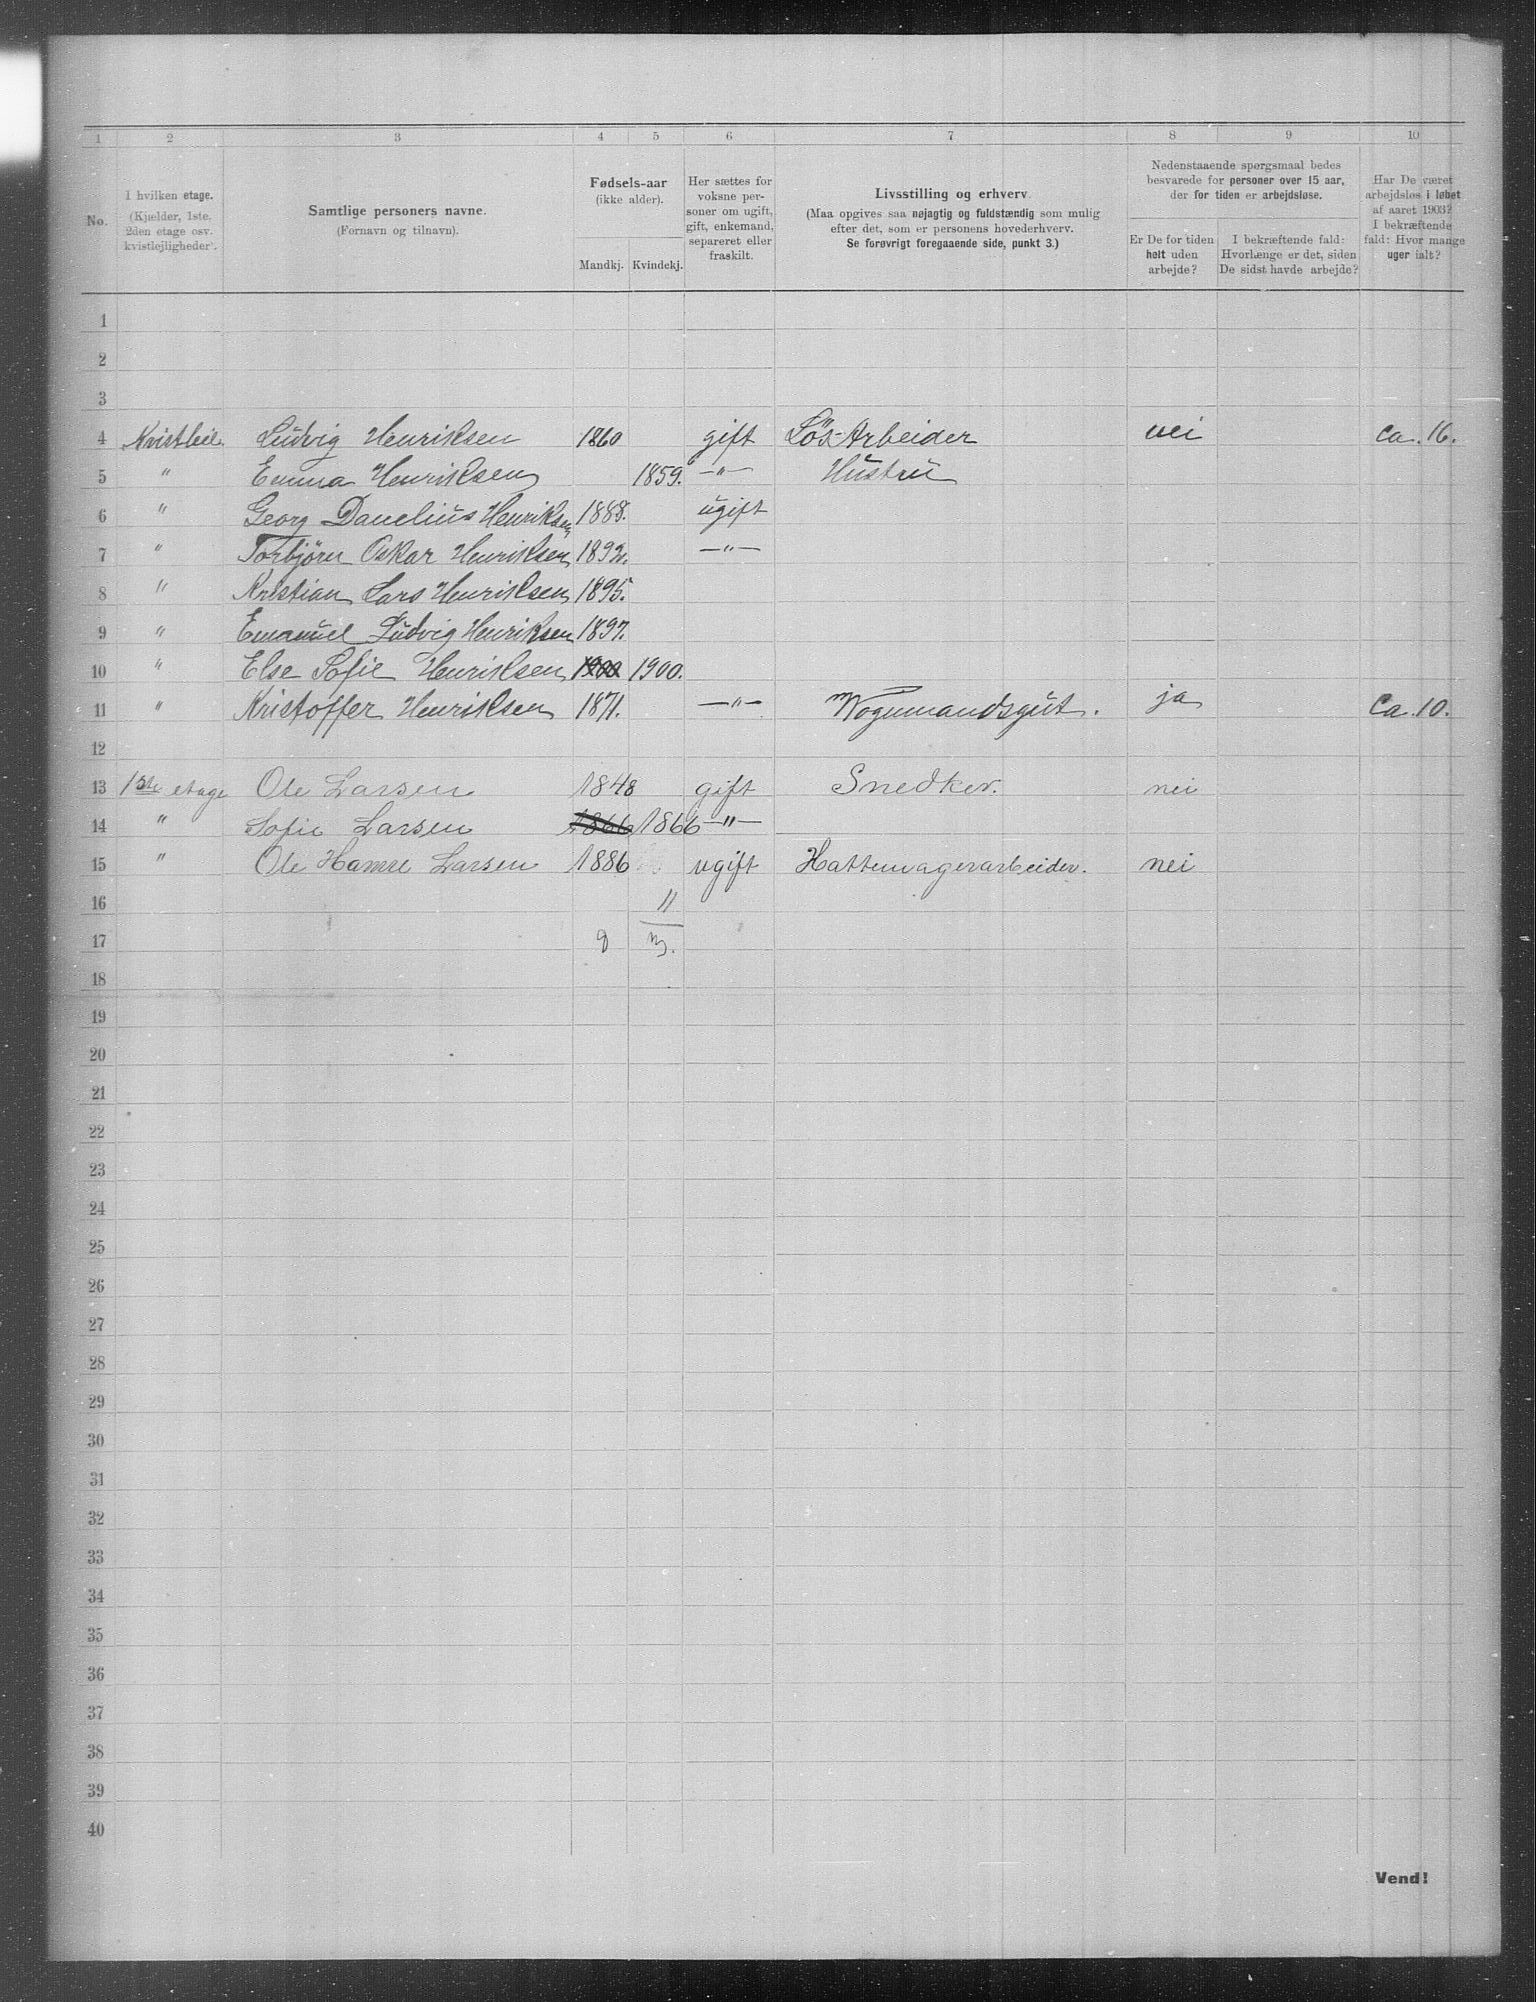 1 2 3 4 5 6 7 8 9 10
No.
I hvilken etage.
(Kjælder, 1ste.
2den etage osv.
kvistlejligheder).
Samtlige personers navne.
(Fornavn og tilnavn).
Fødsels-aar
(ikke alder).
Mandkj. Kvindekj.
Her sættes for
voksne per-
soner om ugift,
gift, enkemand,
separeret eller
fraskilt.
Livsstilling og erhverv.
(Maa opgives saa nøjagtig og fuldstændig som mulig
efter det, som er personens hovederhverv.
Se forøvrigt foregaaende side, punkt 3.)
Nedenstaaende spørgsmaal bedes
besvarede for personer over 15 aar,
der for tiden er arbejdsløse.
Er De for tiden
helt uden
arbejde?
I bekræftende fald:
Hvorlænge er det, siden
De sidst havde arbejde?
Har De været
arbejdsløs i løbet
af aaret 1903?
I bekræftende
fald: Hvor mange
uger ialt?
1
2
3
4 Kvistleil. Ludvig Henriksen 1860 gift Løs-Arbeider nei ca. 16.
5 " Emma Henriksen 1859. —"— Hustru
6 " Georg Danelius Henriksen 1888. ugift
7 " Torbjørn Oskar Henriksen 1892. —"—
8 " Kristian Lars Henriksen 1895.
9 " Emanuel Ludvig Henriksen 1897.
10 " Else Sofie Henriksen 1900 1900.
11 " Kristoffer Henriksen 1871. —"— Vognmandsgut. ja Ca. 10.
12
13 1ste etage Ole Larsen 1848 gift Snedker. nei
14 " Sofie Larsen 1866 1866 —"—
15 " Ole Hamre Larsen 1886 ugift Hattemagerarbeider. nei
16 11
17 3.
18
19
20
21
22
23
24
25
26
27
28
29
30
31
32
33
34
35
36
37
38
39
40
Vend!